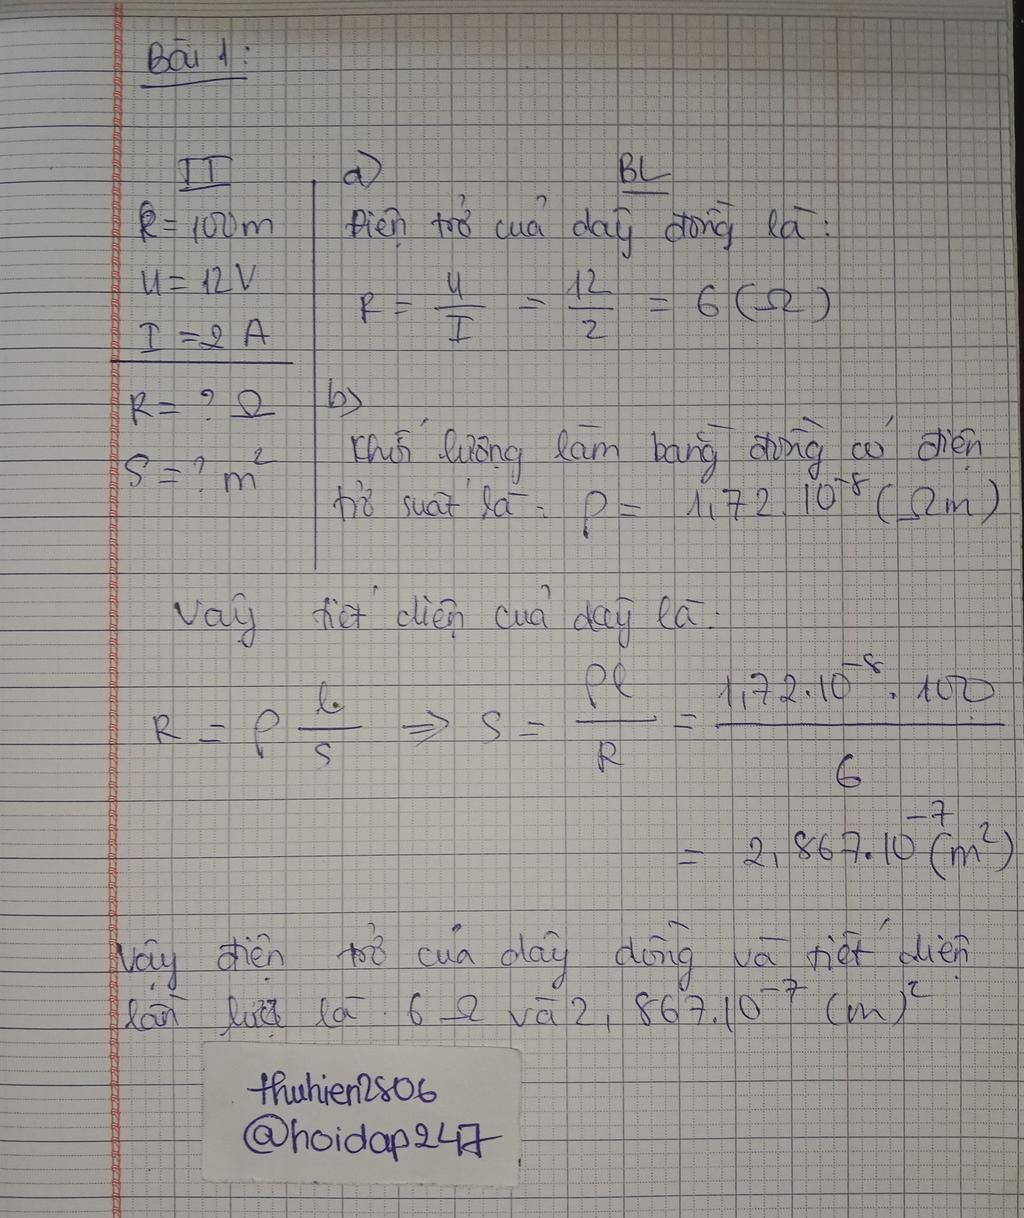 Bài 1:
TT
l = 100m
U = 12V
I = 2 A
R = ? Ω
S = ? m²
a)
BL
Điện trở của dây đồng là:
R = U/I = 12/2 = 6 (Ω)
b)
Khối lượng làm bằng đồng có điện
trở suất là: ρ = 1,72.10⁻⁸ (Ωm)
Vậy tiết diện của dây là:
R = ρ l/S => S = ρl/R = 1,72.10⁻⁸.100/6
= 2,867.10⁻⁷ (m²)
Vậy điện trở của dây đồng và tiết diện
lần lượt là 6 Ω và 2,867.10⁻⁷ (m)²
thuhien2806
@hoidap247